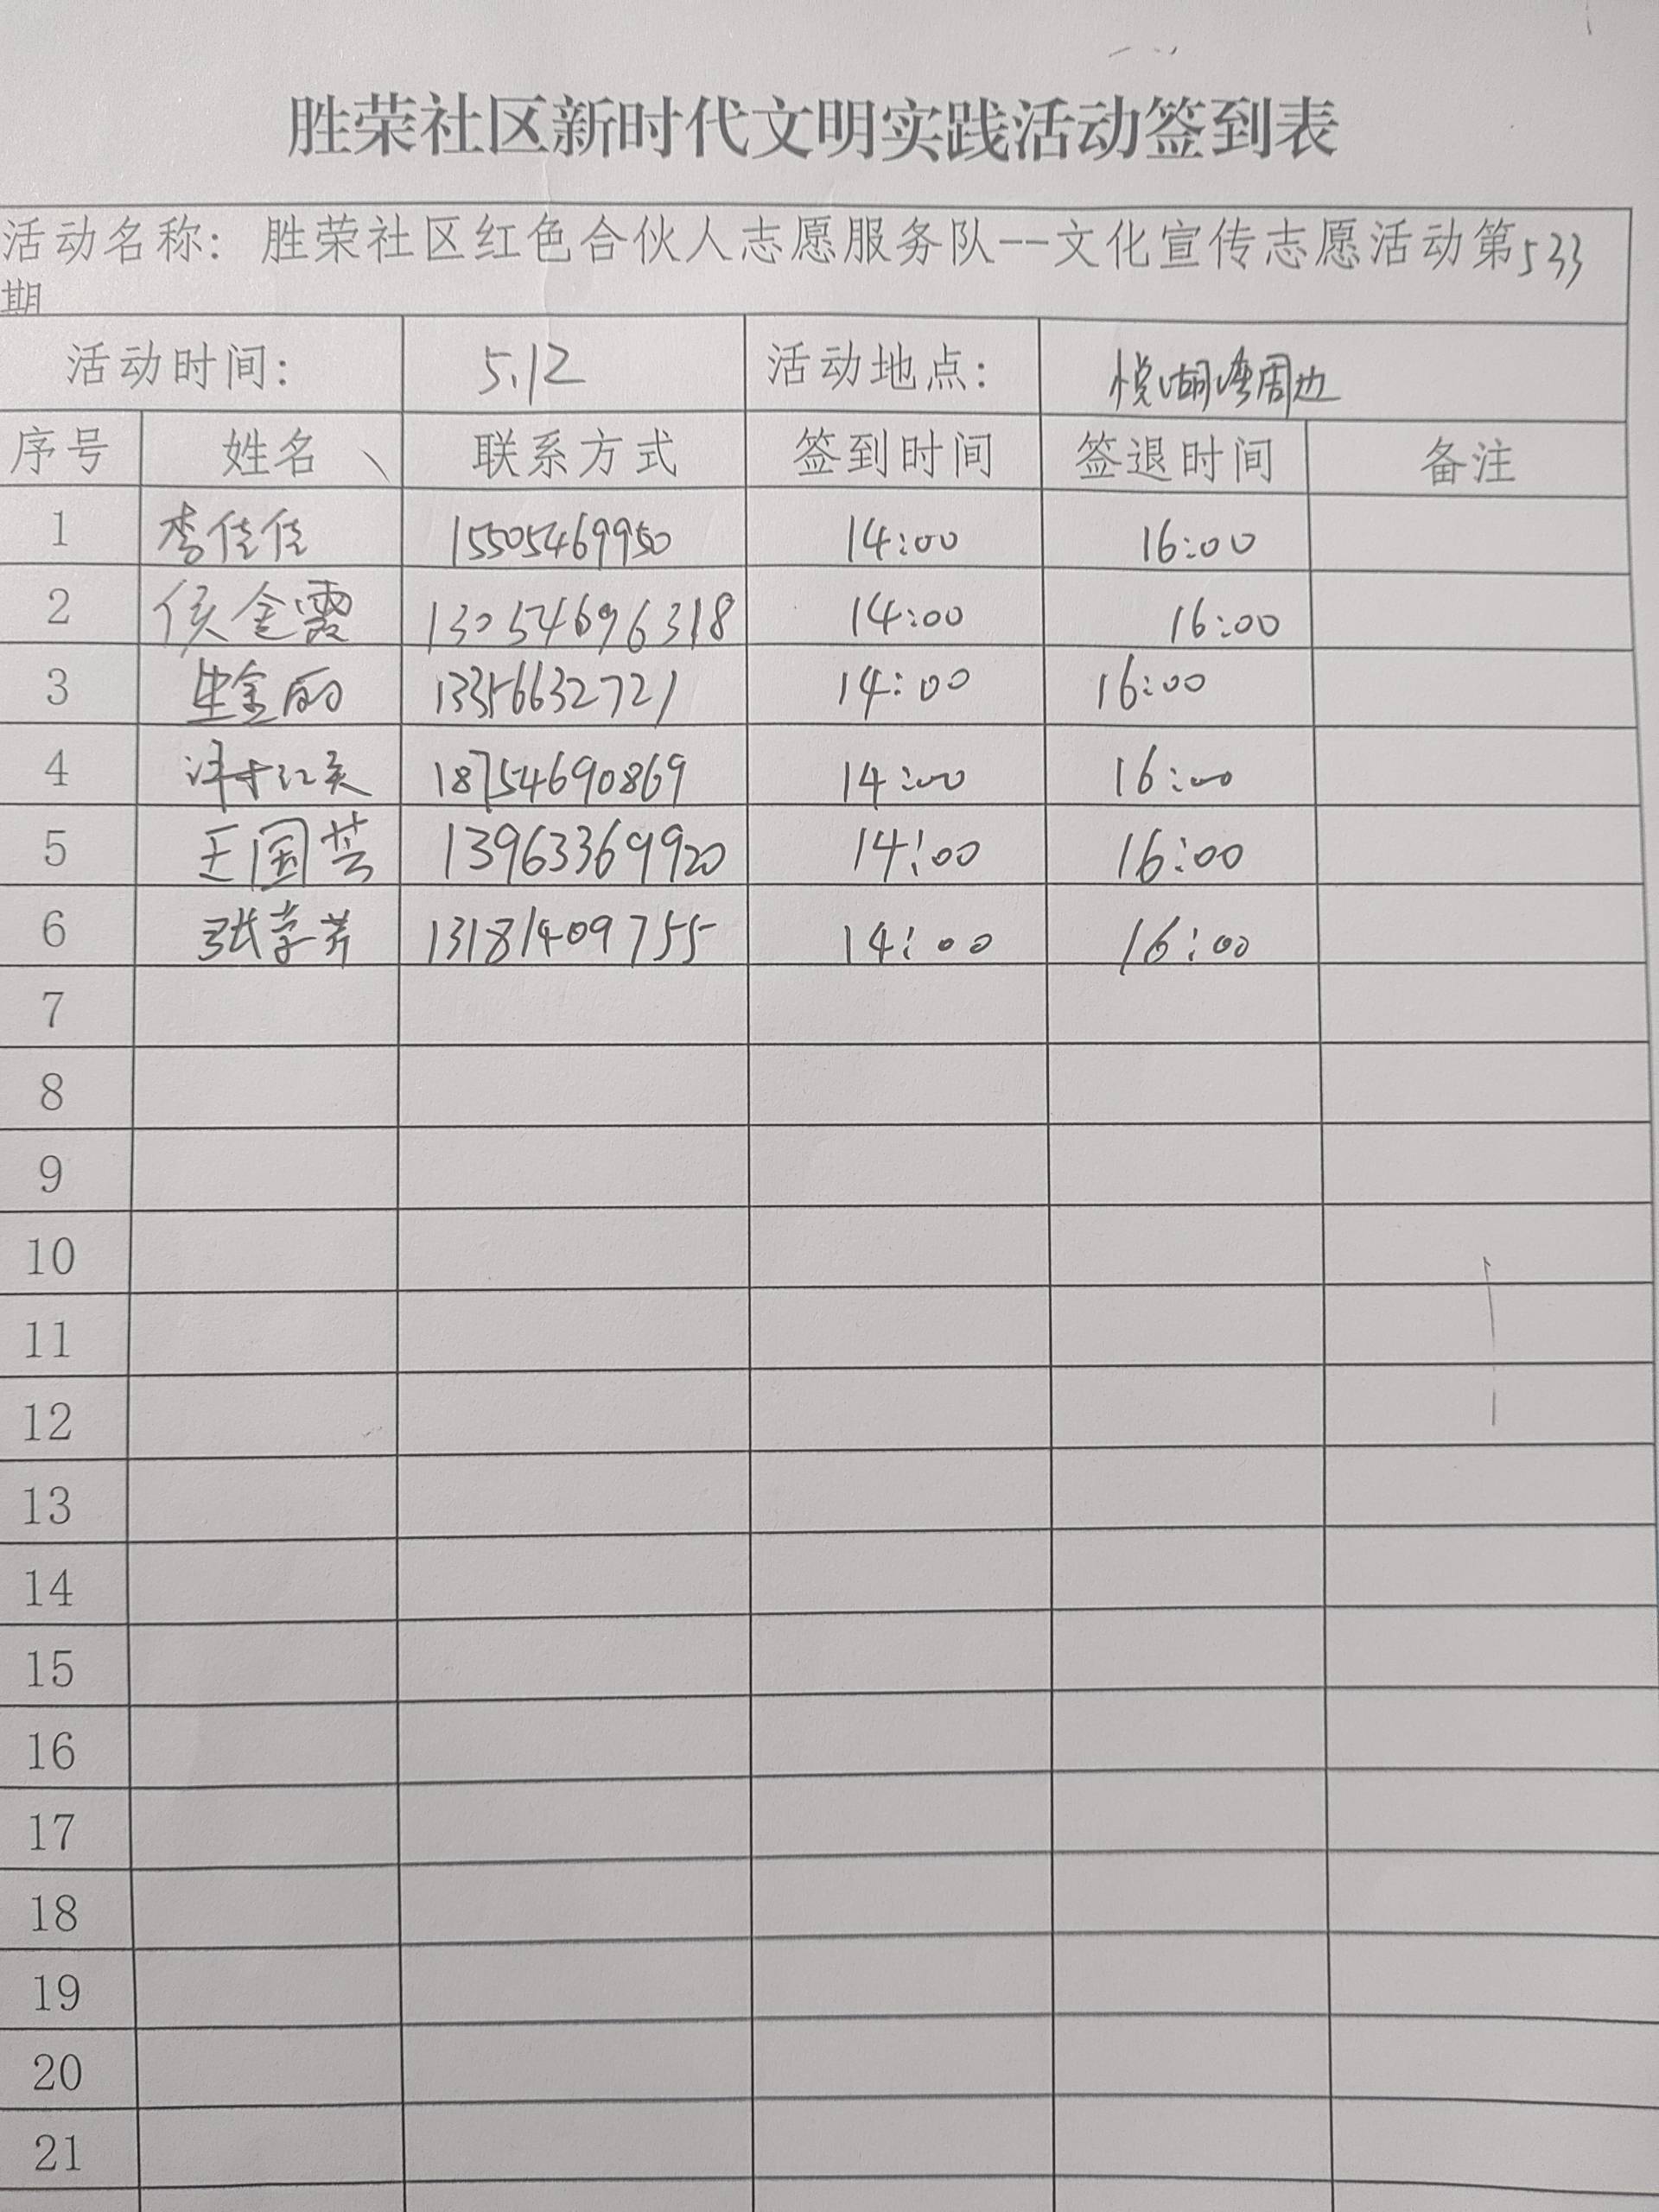 胜荣社区新时代文明实践活动签到表
活动名称：胜荣社区红色合伙人志愿服务队--文化宣传志愿活动第533
期
活动时间： 5.12 活动地点： 悦湖湾周边
序号 姓名 联系方式 签到时间 签退时间 备注
1 李佳佳 15505469950 14:00 16:00
2 侯金霞 13054696318 14:00 16:00
3 金丽 13356632721 14:00 16:00
4 18754690869 14:00 16:00
5 王国芸 13963369920 14:00 16:00
6 张 13181409755 14:00 16:00
7
8
9
10
11
12
13
14
15
16
17
18
19
20
21